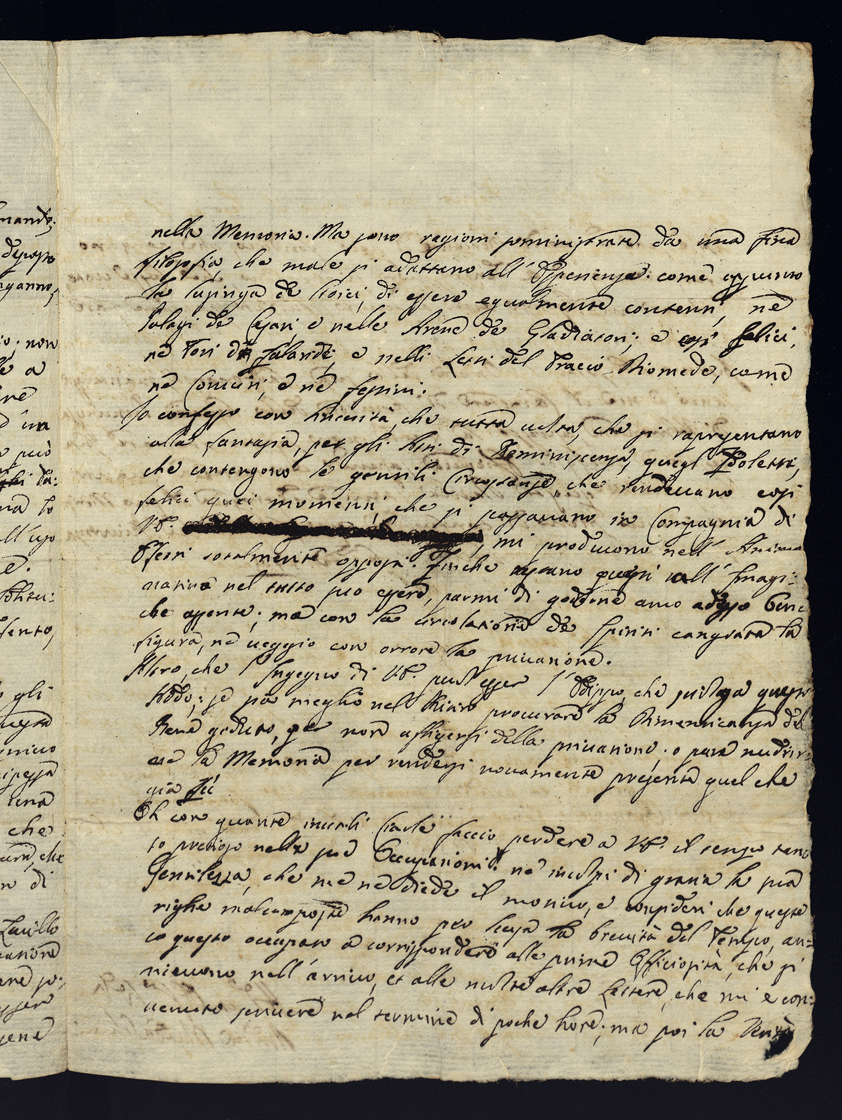 nella Memoria. Ma sono ragioni sominištrate da una fina
filosofia, che male si adattano all' Esperienza: come appunto
la lusinga de Stoici, di essere egualmente contenti, ne
Palagi de Cesari e nelle Arene de Gladiatori; e così felici,
ne Tori di Falaride, e nelli Letti del Tracio Diomede, come
ne Conviti, e ne festini.
Io confesso con sincerità, che tutta volta, che si rapresentano
alla fantasia, per gli Atti di Reminiscenza, quegl' Idoletti,
che contengono le gentili Circostanze che rendevano così
felici quei momenti, che si passavano in Compagnia di
VS. mi producono nell' Anima
Effetti totalmente opposti. Finche restano quasi nell' Imagi:
nativa nel tutto suo essere, parmi di goderne anco adesso benc
che assente; ma con la circolatione de Spiriti cangiata la
figura, ne veggio con orrore la privatione.
Altro, che l' Ingegno di VS. può esser l' Edippo, che sciolga questo
Nodo; se sia meglio nel Ritiro procurare la Dimenticanza del
Bene goduto, per non affligersi della privatione. o pure nudrir:
ne la Memoria per rendersi novamente presente quel che
già fù
Oh con quante inutili Ciarle faccio perdere a VS. il tempo tan:
to prezioso nelle sue Occupationi; ne incolpi di gratia la sua
Gentilezza, che me ne diede il motivo, e consideri che queste
righe malcomposte hanno per scusa la brevità del Tempo, an:
co questo occupato a corrispondere alle prime Officiosità, che si
ricevono nell' arrivo, et alle molte altre Lettere, che mi è con:
venuto scrivere nel termine di poche hore; ma poi la Verità